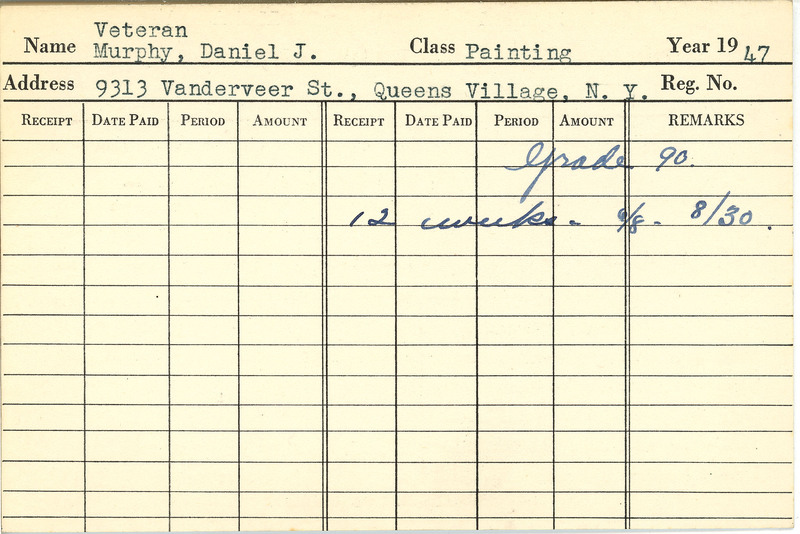 Veteran
Name Murphy, Daniel J. Class Painting Year 19 47
Address 9313 Vanderveer St., Queens Village, N. Y. Reg. No.
RECEIPT DATE PAID PERIOD AMOUNT RECEIPT DATE PAID PERIOD AMOUNT REMARKS
Grade 90.
12 weeks - 6/8 - 8/30.